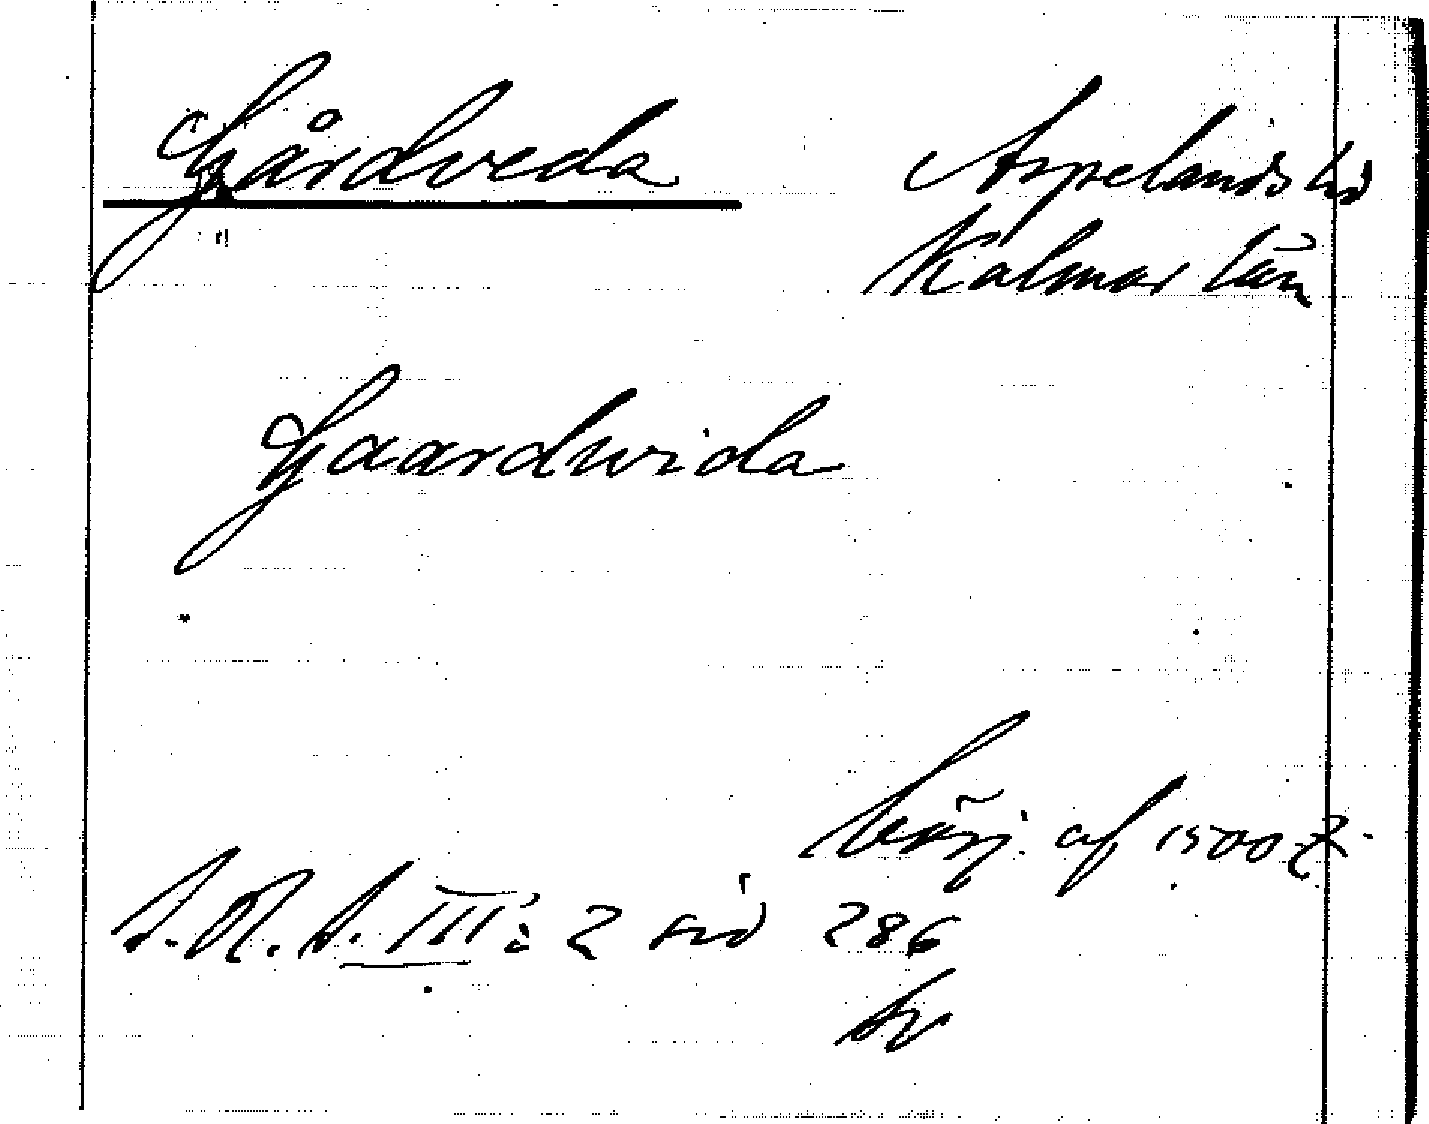 Gårdveda
Aspelands hd
Kalmar län
Gaardwida
börj. af 1500 t.
S. R. S. III: 2 sid 286